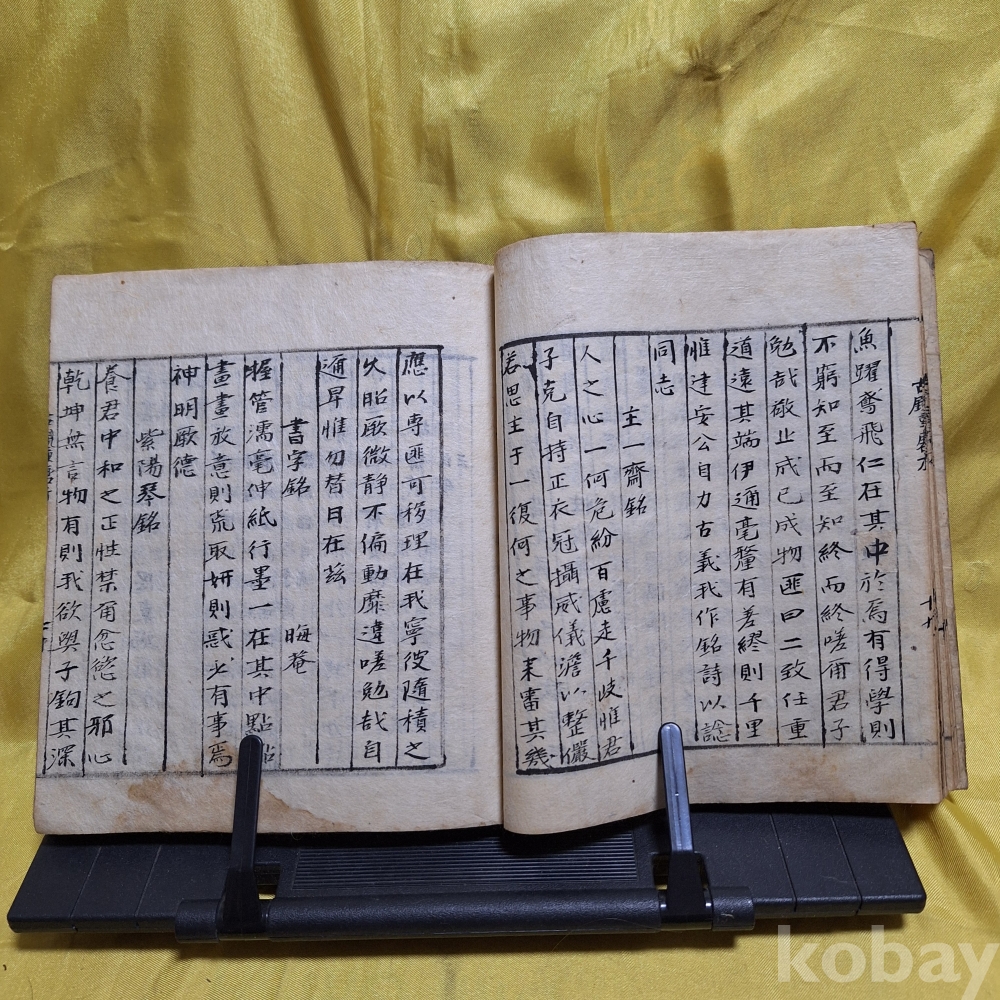 魚躍鳶飛仁在其中於焉有得學則
不窮知至而至知終而終嗟甭君子
勉哉敬止成己成物匪曰二致任重
道遠其端伊邇毫釐有差繆則千里
惟建安公自力古義我作銘詩以諗
同志
主一齋銘
人之心一何危紛百慮走千岐惟君
子克自持正衣冠攝威儀澹以整儼
若思主于一復何之事物来審其幾
應以専匪可移理在我寧彼隨積之
久昭厥微静不偏動靡違嗟勉哉自
邇卑惟勿替日在兹
書字銘 晦菴
握管濡毫伸紙行墨一在其中點點
畫畫放意則荒取妍則惑必有事焉
神明厥德
紫陽琴銘
養君中和之正性禁甭忿慾之邪心
乾坤無言物有則我欲與子鉤其深
kobay